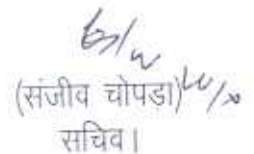 (संजीव चोपडा)
सचिव।